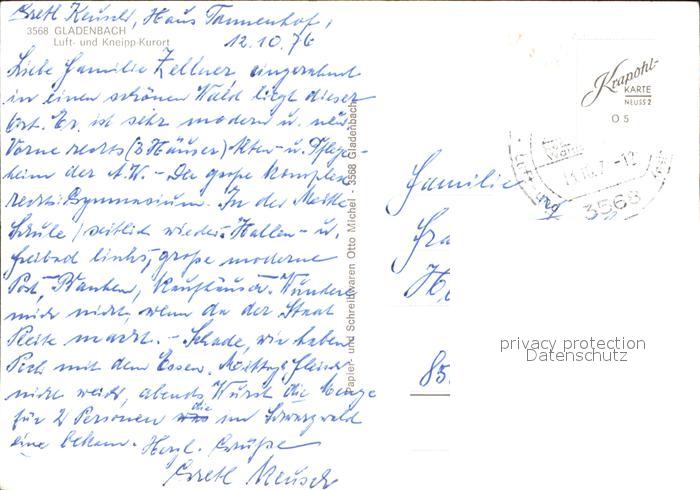 Gretl Keusch, Haus Tannenhof,
3568 GLADENBACH
Luft- und Kneipp-Kurort
12.10.76
Liebe Familie Zellner, eingerahmt
in einen schönen Wald liegt dieser
Ort. Er ist sehr modern u. neu.
Vorne rechts (3 Häuser) Alten- u. Pflege-
heim der A.W. - Der große Komplex
rechts Gymnasium. In der Mitte
Schule / seitlich wieder Hallen- u.
Freibad links, große moderne
Post, Banken, Kaufhäuser. Wundere
mich nicht, wenn da der Staat
Pleite macht. - Schade, wir haben
Pech mit dem Essen. Mittags Fleisch
nicht weich, abends Wurst die Menge
für 2 Personen die im Schwarzwald
eine bekam. Herzl. Grüße
Gretl Keusch
Papier- und Schreibwaren Otto Michel - 3568 Gladenbach
Krapohl-
KARTE
NEUSS 2
O 5
3568
Familie
85
privacy protection
Datenschutz